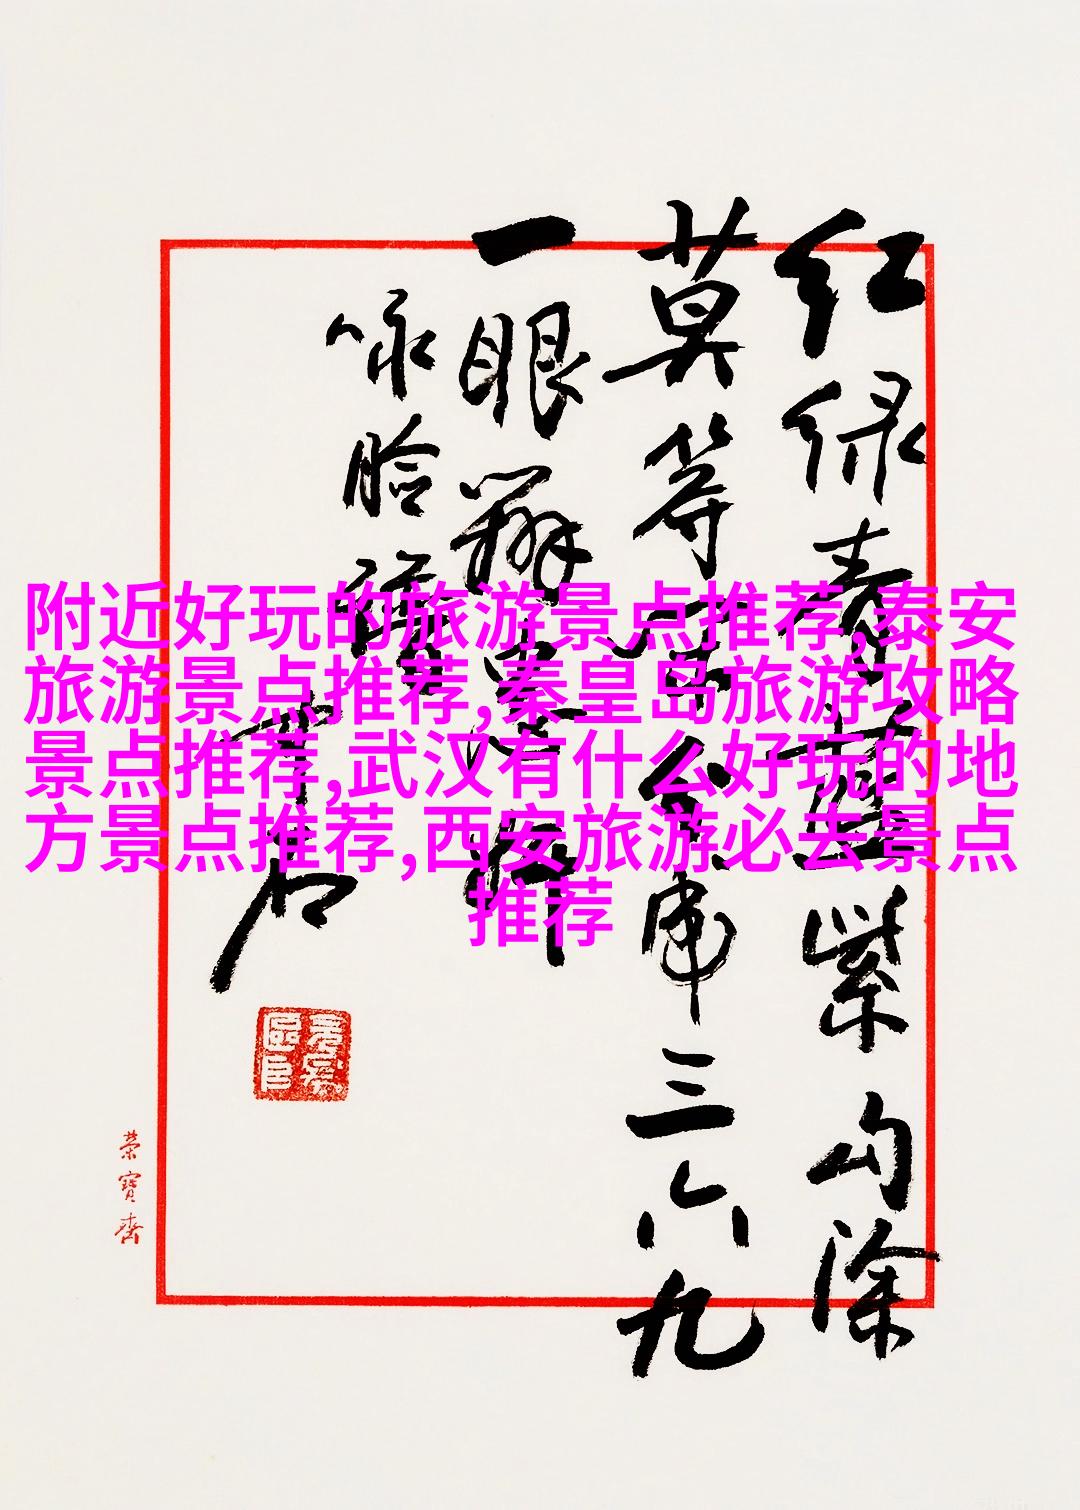 红绿青蓝紫勾
莫等三六九
一眼辨
咏脸谱
榮寶齋
附近好玩的旅游景点推荐,泰安
旅游景点推荐,秦皇岛旅游攻略
景点推荐,武汉有什么好玩的地
方景点推荐,西安旅游必去景点
推荐